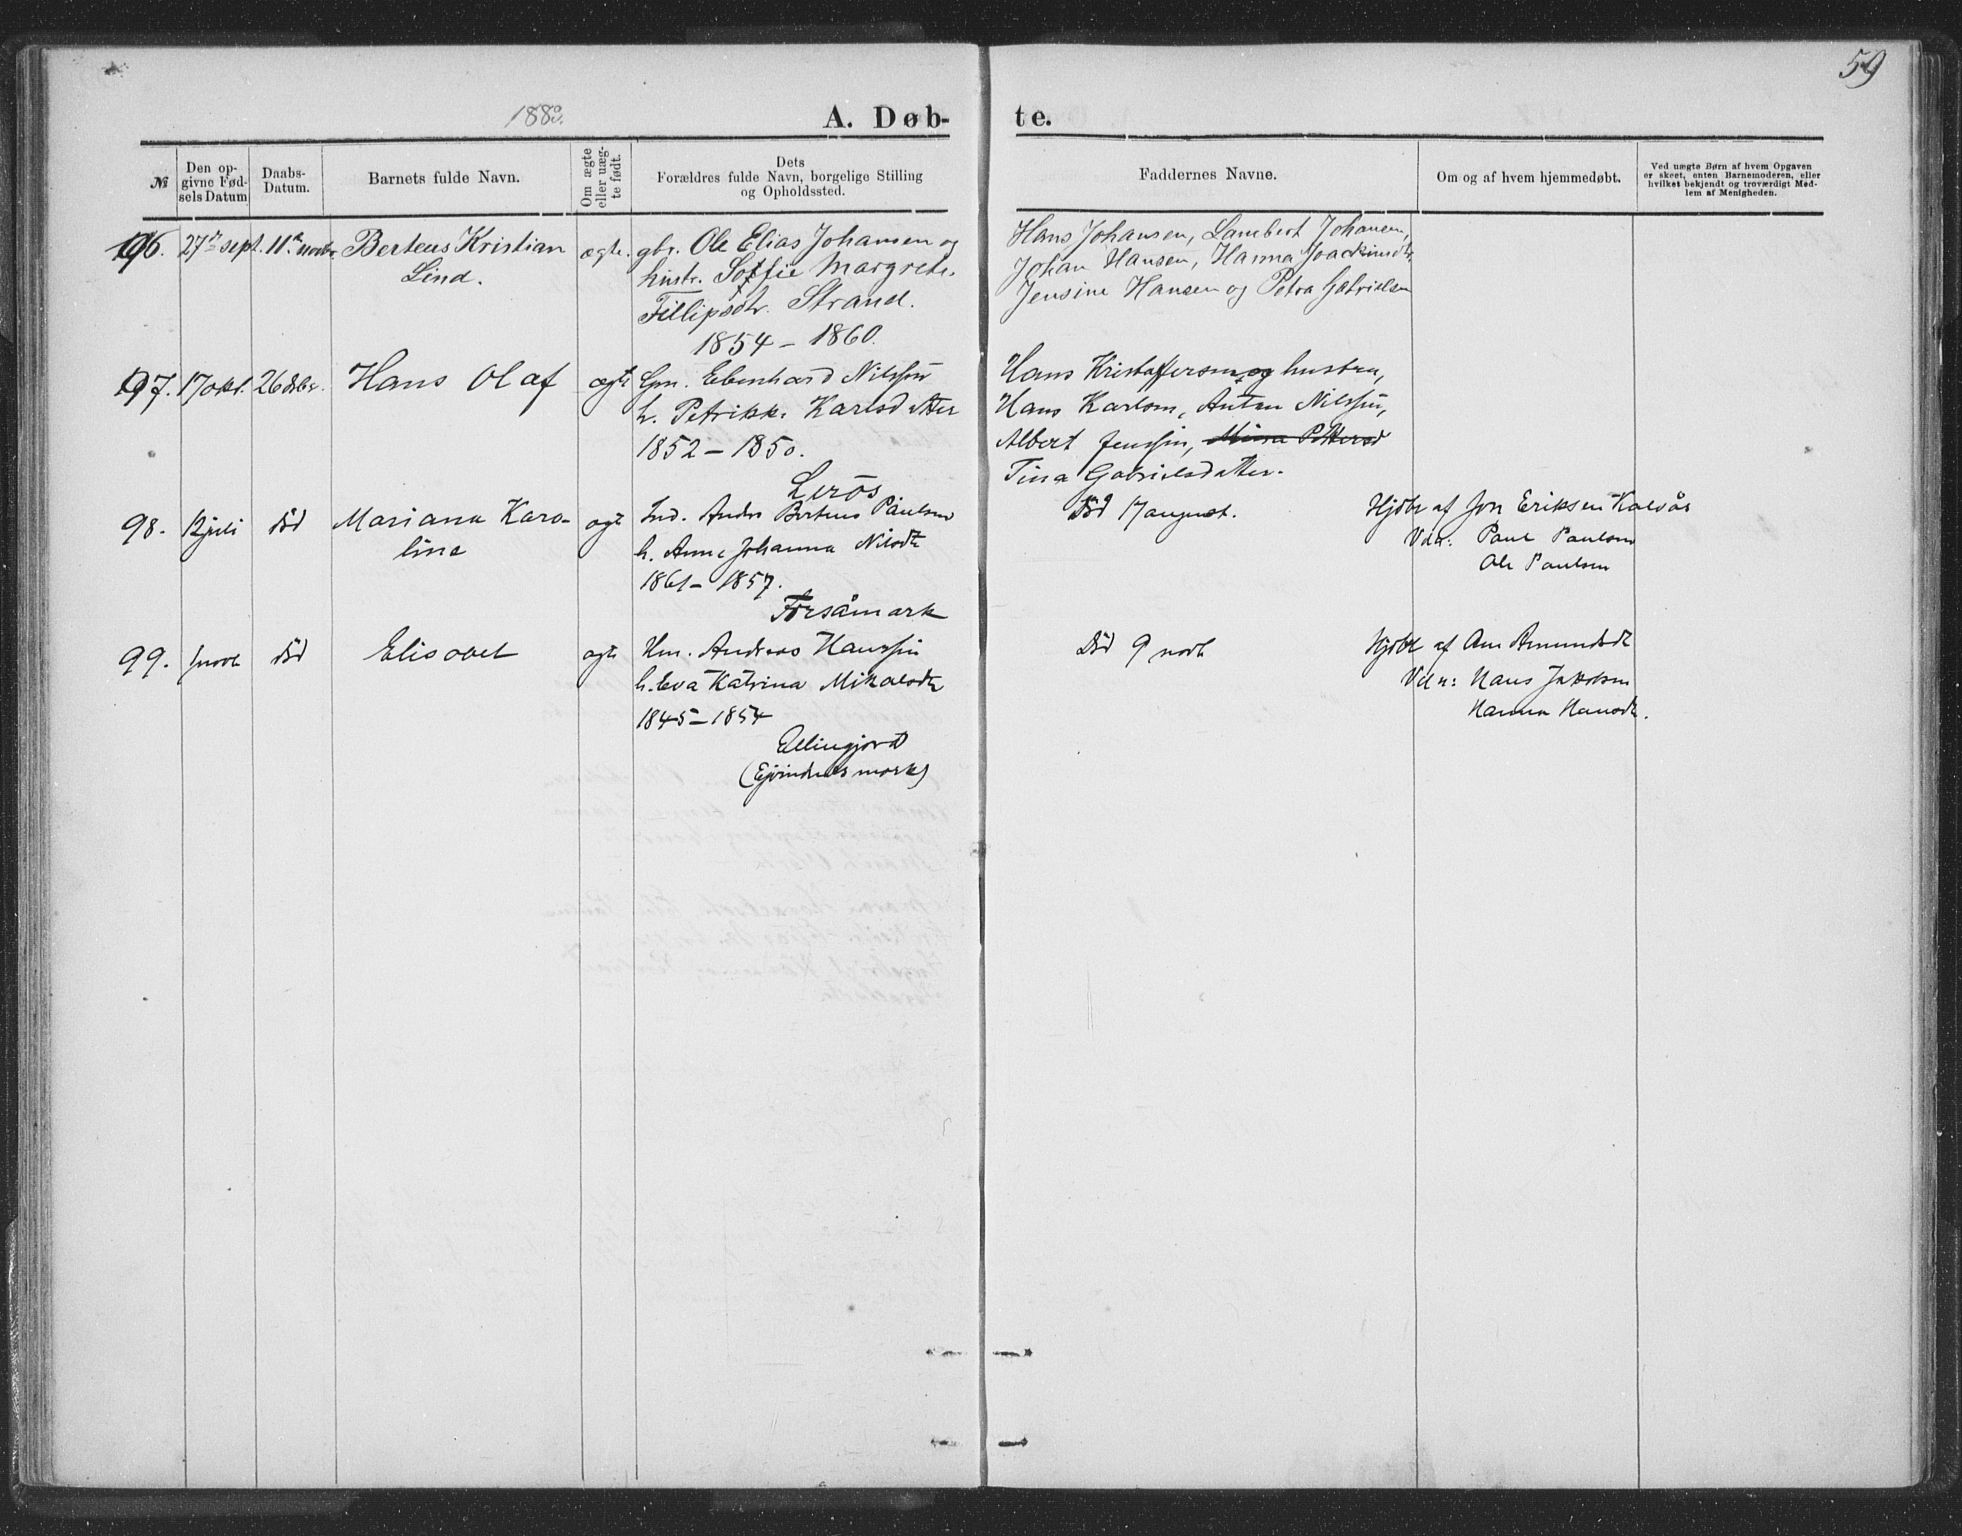 59
188
A. Døb-
te.
№
Den op-
givne Fød-
sels Datum
Daabs-
Datum.
Barnets fulde Navn.
Om ægte
eller uæg-
te født.
Dets
Forældres fulde Navn, borgelige Stilling
og Opholdssted.
Faddernes Navne.
Om og af hvem hjemmedøbt.
Ved uægte Børn af hvem Opgaven
er skeet, enten Barnemoderen, eller
hvilket bekjendt og troværdigt Med-
lem af Menigheden.
96. 27de sept. 11te novbr. Berteus Kristian ægte. gbr. Ole Elias Johansen og
Lind. hustr. Soffie Margrete
Fillipsdtr. Strand.
1854 – 1860.
Hans Johansen, Lambert Johansen,
Johan Hansen, Hanna Joackimdtr,
Jensine Hansen og Petra Gabrielsen
97. 17 okt. 26 dsbr. Hans Olaf ægte Gm. Ebenhard Nilssen
h. Petrikke Karlsdatter
1852 – 1850.
Lerøs
Hans Kristoffersen og hustru,
Hans Karlsen, Anton Nilssen,
Albert Jenssen, Mina Pettersd
Tina Gabrielsdatter.
98. juli död Mariana Karo- ægte Ind. Anders Berteus Paulsen
line h. Anne Johanna Nilsdtr
1861 – 1857.
Forsåmark
Död 17 august. Hjdbt af Jon Eriksen Kalvås
Vdn: Paul Paulsen
Ole Paulsen
99. novb död Elisabet ægte Hm. Andreas Hanssen
h. Eva Katrina Mikalsdtr
1845 – 1854
Ellingjord
(Ejvindnes mark)
Död 9 novb Hjdbt af Ane Amundsdtr
Vidn: Hans Jakobsen
Hanna Hansdtr.